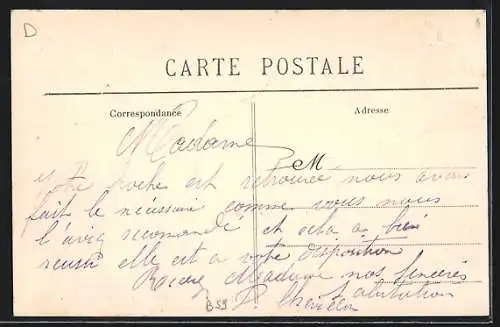 D
CARTE POSTALE
Correspondance
Adresse
Madame
M
Votre broche est retrouvée nous avons
fait le nécéssaire comme vous nous
l'aviez recomandé et cela a bien
reussi elle est a votre disposition
Recevez Madame nos sinceres
Salutation